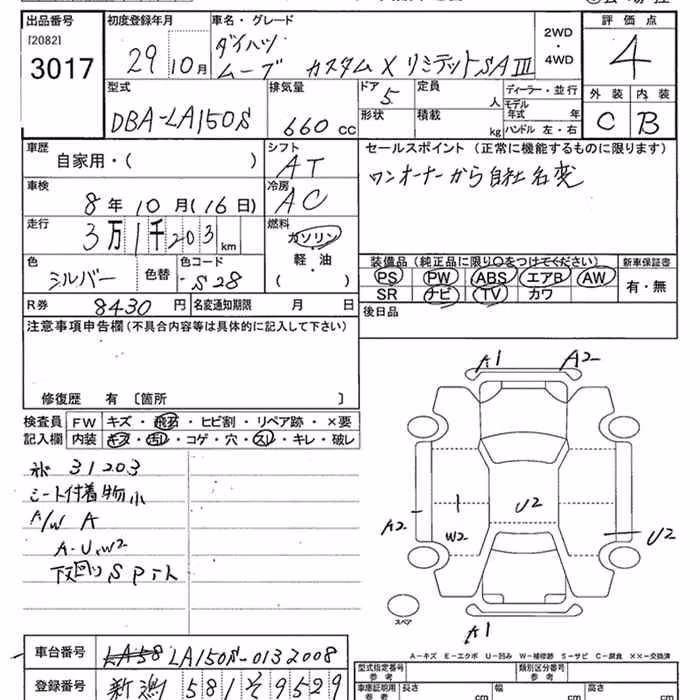 出品番号 初度登録年月 車名・グレード 評価点
[2082]
3017
29年 10月
ダイハツ
ムーブ カスタムX リミテッドSAⅢ
2WD
・
4WD
4
型式 排気量 ドア 定員 ディーラー・並行 外装 内装
DBA-LA150S 660cc 5 人 モデル年式 年 C B
形状 積載 kg ハンドル 左・右
車歴 シフト セールスポイント(正常に機能するものに限ります)
自家用・( ) AT ワンオーナーから自社名変
車検 冷房
8年 10月(16日) AC
走行 燃料
3万1千203km ガソリン
軽・油
・
( )
色 色替 色コード
シルバー S28
装備品(純正品に限り○をつけてください) 新車保証書
PS PW ABS エアB AW 有・無
SR ナビ TV カワ
R券 8430円 名変通知期限 月 日 後日品
注意事項申告欄(不具合内容等は具体的に記入して下さい)
修復歴 有 〔箇所 〕
検査員 FW キズ・飛石・ヒビ割・リペア跡・×要
記入欄 内装 キズ・汚レ・コゲ・穴・スレ・キレ・破レ
31203
シート付着物小
A/W A
A-U.W2
下回りS
A1 A2
A2 W2 U2 U2
スペア
A1
A-キズ E-エクボ U-凹み W-補修跡 S-サビ C-腐食 ××-交換済
車台番号 LA150S-0132008
型式指定番号 参考 類別区分番号 参考
登録番号 新潟 581 そ 9529
車庫証明用 参考 長さ cm 幅 cm 高さ cm